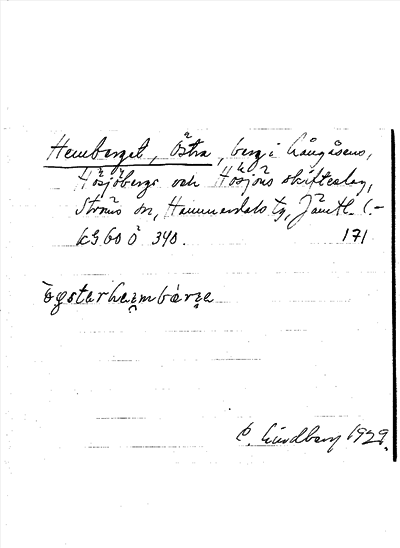 Hemberget, Östra, berg i Långåsens,
Högsjöbergs och Högsjöns skifteslag,
Ströms sn, Hammerdals tg, Jämtl. l.
KG 60 Ö 340. 171
östarhei̯mbærie
O. Lundberg 1929.